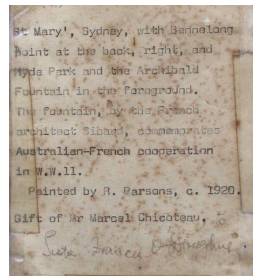 St Mary', Sydney, with Bennelong
Point at the back, right, and
Hyde Park and the Archibald
Fountain in the foreground.
The fountain, by the French
architect Sicard, commemorates
Australian-French cooperation
in W.W.11.
Painted by R. Parsons, c. 1920.
Gift of Mr Marcel Chicoteau, to
Sister Francis